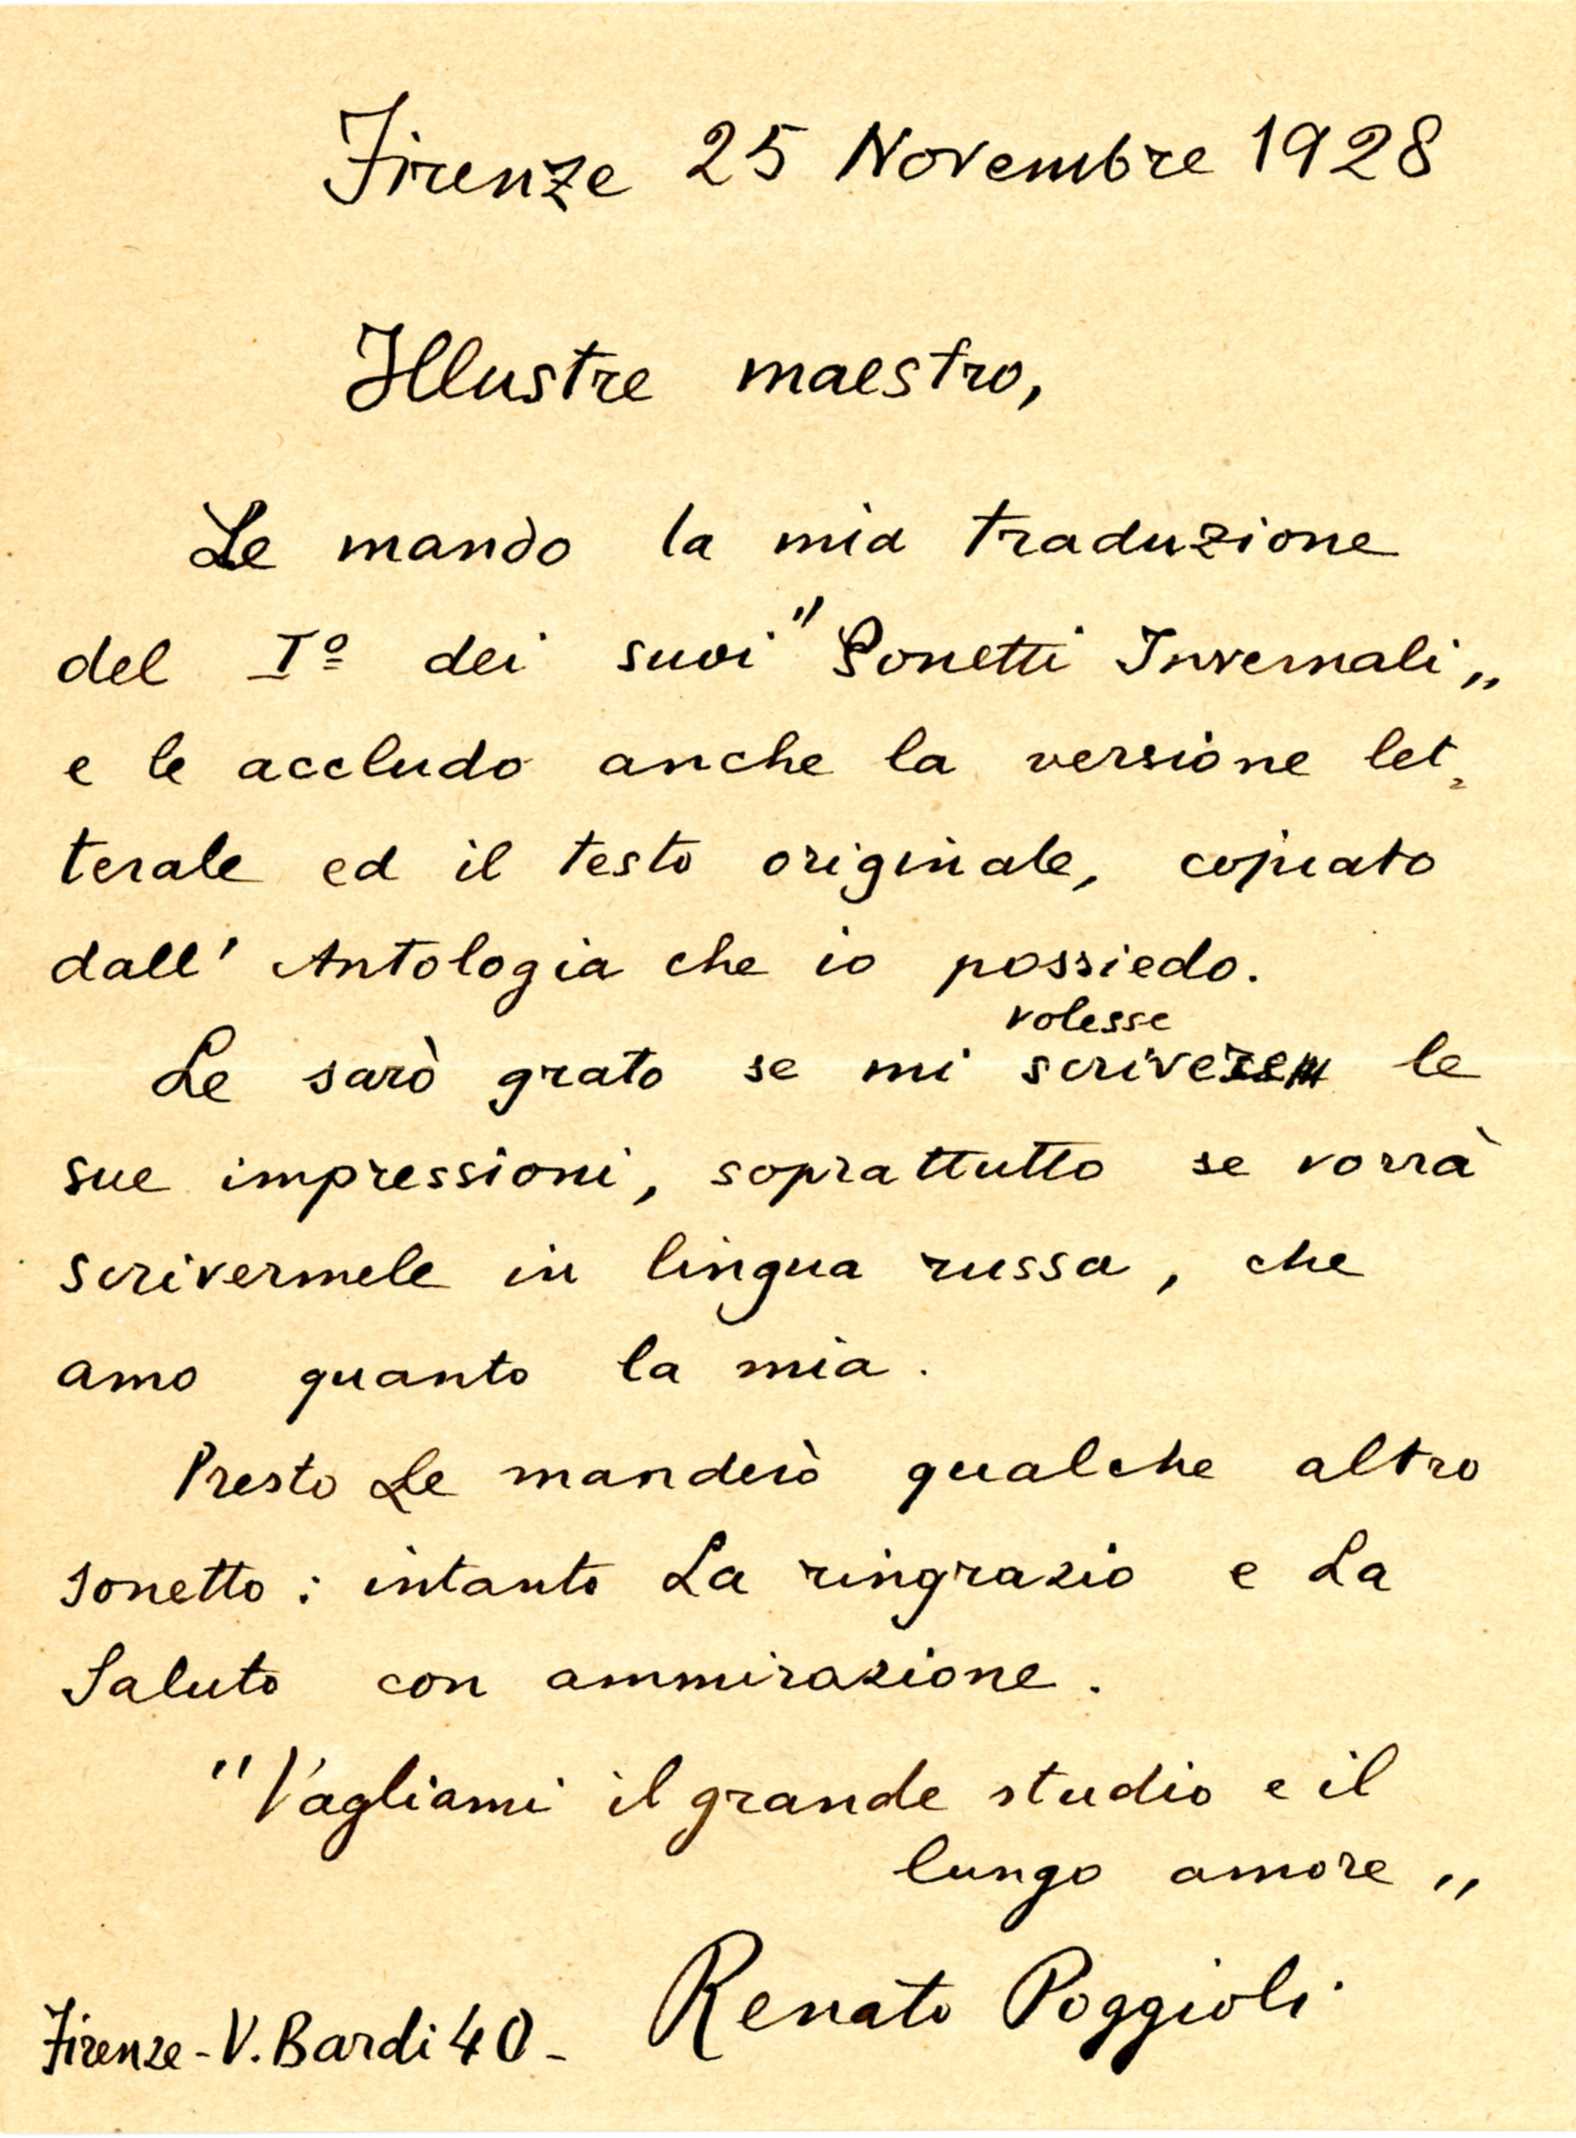 Firenze 25 Novembre 1928
Illustre maestro,
Le mando la mia traduzione
del Iº dei suoi "Sonetti Invernali„
e le accludo anche la versione let=
terale ed il testo originale, copiato
dall' Antologia che io possiedo.
volesse
Le sarò grato se mi scrivere le
sue impressioni, soprattutto se vorrà
scrivermele in lingua russa, che
amo quanto la mia.
Presto Le manderò qualche altro
sonetto: intanto La ringrazio e La
Saluto con ammirazione.
"Vagliami il grande studio e il
lungo amore„
Renato Poggioli
Firenze - V. Bardi 40 -